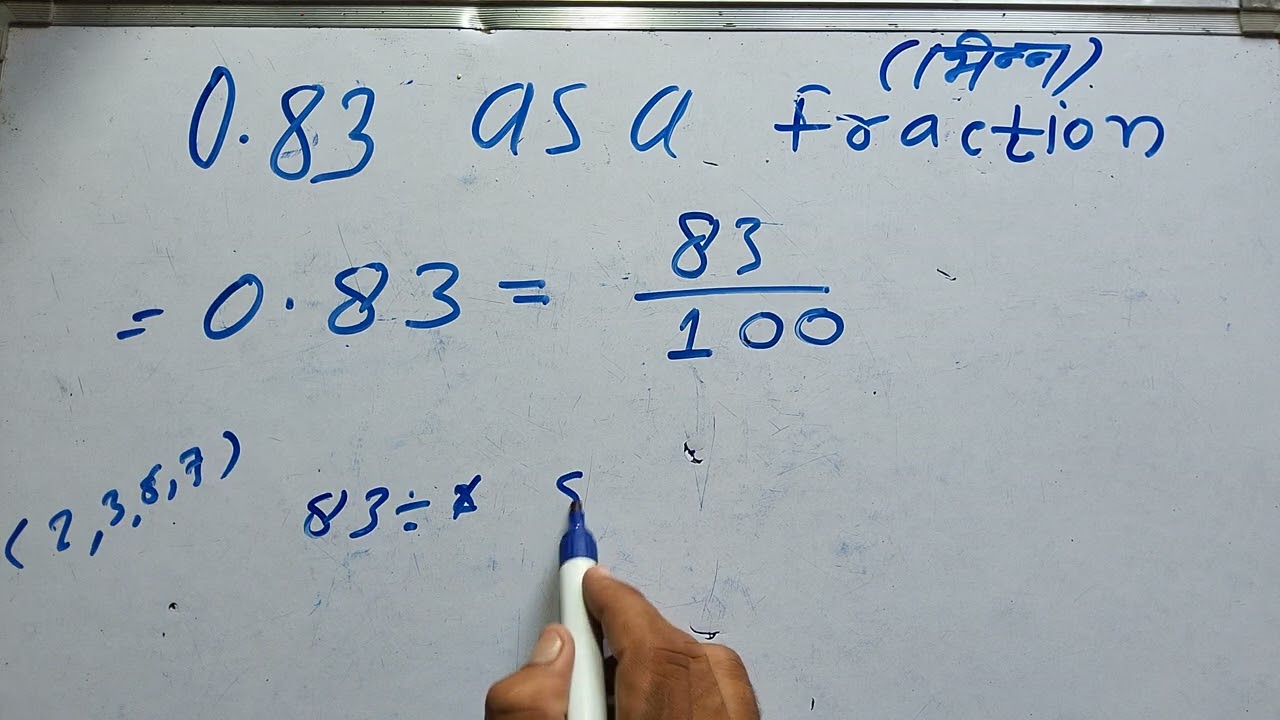 (भिन्न)
0.83 as a fraction
= 0.83 = 83/100
(2,3,5,7) 83÷